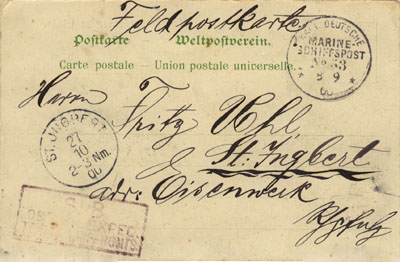 Feldpostkarte
Postkarte Weltpostverein.
Carte postale – Union postale universelle.
DEUTSCHE
MARINE-
SCHIFFSPOST
No 68
8 9
00
Herrn
Fritz Uhl
ST. INGBERT
27
10
2-3 Nm.
00
St. Ingbert
adr: Eisenwerk
S. B.